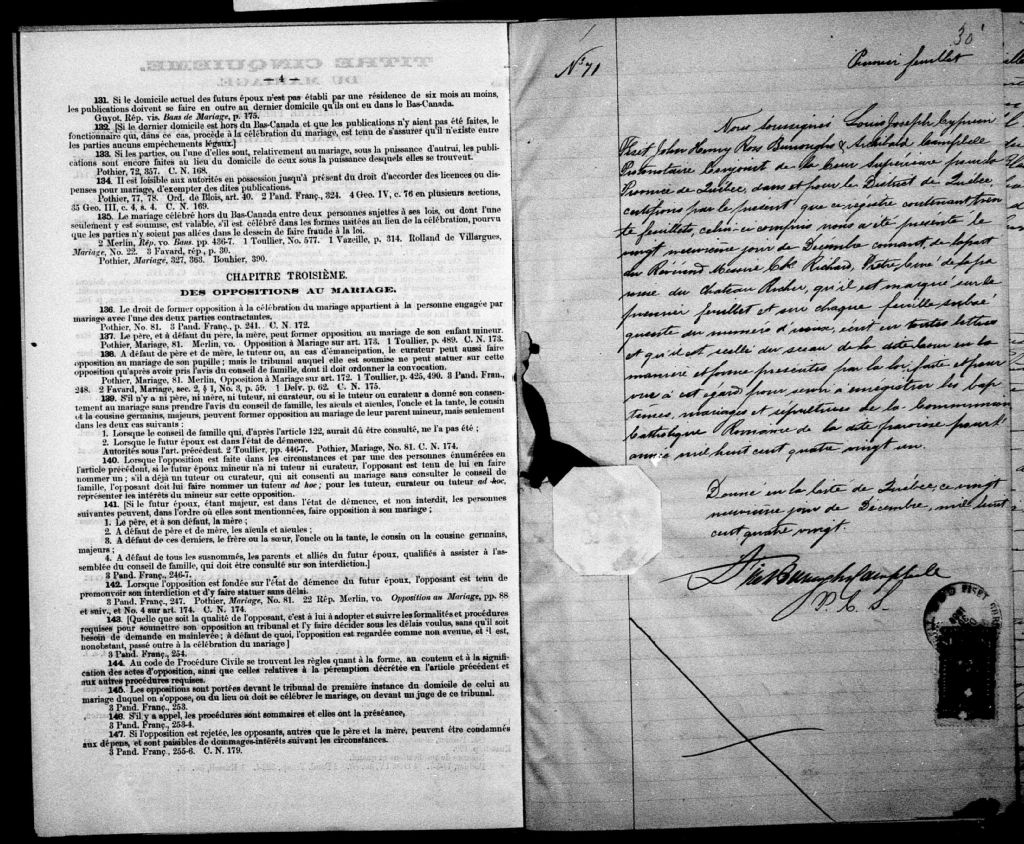 — 4 —
131. Si le domicile actuel des futurs époux n'est pas établi par une résidence de six mois au moins,
les publications doivent se faire en outre au dernier domicile qu'ils ont eu dans le Bas-Canada.
Guyot, Rép. vis. Bans de Mariage, p. 175.
132. [Si le dernier domicile est hors du Bas-Canada et que les publications n'y aient pas été faites, le
fonctionnaire qui, dans ce cas, procède à la célébration du mariage, est tenu de s'assurer qu'il n'existe entre
les parties aucuns empêchements légaux.]
133. Si les parties, ou l'une d'elles sont, relativement au mariage, sous la puissance d'autrui, les publi-
cations sont encore faites au lieu du domicile de ceux sous la puissance desquels elles se trouvent.
Pothier, 72, 357. C. N. 168.
134. Il est loisible aux autorités en possession jusqu'à présent du droit d'accorder des licences ou dis-
penses pour mariage, d'exempter des dites publications.
Pothier, 77, 78. Ord. de Blois, art. 40. 2 Pand. Franç., 324. 4 Geo. IV, c. 76 en plusieurs sections,
35 Geo. III, c. 4, s. 4. C. N. 169.
135. Le mariage célébré hors du Bas-Canada entre deux personnes sujettes à ses lois, ou dont l'une
seulement y est soumise, est valable, s'il est célébré dans les formes usitées au lieu de la célébration, pourvu
que les parties n'y soient pas allées dans le dessein de faire fraude à la loi.
2 Merlin, Rép. vo. Bans. pp. 436-7. 1 Toullier, No. 577. 1 Vazeille, p. 314. Rolland de Villargues,
Mariage, No. 22. 3 Favard, rép., p. 30.
Pothier, Mariage, 327, 363. Bouhier, 390.
CHAPITRE TROISIÈME.
DES OPPOSITIONS AU MARIAGE.
136. Le droit de former opposition à la célébration du mariage appartient à la personne engagée par
mariage avec l'une des deux parties contractantes.
Pothier, No. 81. 3 Pand. Franç., p. 241. C. N. 172.
137. Le père, et à défaut du père, la mère, peut former opposition au mariage de son enfant mineur.
Pothier, Mariage, 81. Merlin, vo. Opposition à Mariage sur art. 173. 1 Toullier, p. 489. C. N. 173.
138. A défaut de père et de mère, le tuteur ou, au cas d'émancipation, le curateur peut aussi faire
opposition au mariage de son pupille; mais le tribunal auquel elle est soumise ne peut statuer sur cette
opposition qu'après avoir pris l'avis du conseil de famille, dont il doit ordonner la convocation.
Pothier, Mariage, 81. Merlin, Opposition à Mariage sur art. 172. 1 Toullier, p. 425, 490. 3 Pand. Fran.,
248. 2 Favard, Mariage, sec. 2, § 1, No. 3, p. 59. 1 Delv. p. 62. C. N. 175.
139. S'il n'y a ni père, ni mère, ni tuteur, ni curateur, ou si le tuteur ou curateur a donné son consen-
tement au mariage sans prendre l'avis du conseil de famille, les aïeuls et aïeules, l'oncle et la tante, le cousin
et la cousine germains, majeurs, peuvent former opposition au mariage de leur parent mineur, mais seulement
dans les deux cas suivants:
1. Lorsque le conseil de famille qui, d'après l'article 122, aurait dû être consulté, ne l'a pas été;
2. Lorsque le futur époux est dans l'état de démence.
Autorités sous l'art. précédent. 2 Toullier, pp. 446-7. Pothier, Mariage, No. 81. C. N. 174.
140. Lorsque l'opposition est faite dans les circonstances et par une des personnes énumérées en
l'article précédent, si le futur époux mineur n'a ni tuteur ni curateur, l'opposant est tenu de lui en faire
nommer un; s'il a déjà un tuteur ou curateur, qui ait consenti au mariage sans consulter le conseil de
famille, l'opposant doit lui faire nommer un tuteur ad hoc; pour les tuteur, curateur ou tuteur ad hoc,
représenter les intérêts du mineur sur cette opposition.
141. [Si le futur époux, étant majeur, est dans l'état de démence, et non interdit, les personnes
suivantes peuvent, dans l'ordre où elles sont mentionnées, faire opposition à son mariage;
1. Le père, et à son défaut, la mère;
2. A défaut de père et de mère, les aïeuls et aïeules;
3. A défaut de ces derniers, le frère ou la sœur, l'oncle ou la tante, le cousin ou la cousine germains,
majeurs;
4. A défaut de tous les susnommés, les parents et alliés du futur époux, qualifiés à assister à l'as-
semblée du conseil de famille, qui doit être consulté sur son interdiction.]
3 Pand. Franç., 246-7.
142. Lorsque l'opposition est fondée sur l'état de démence du futur époux, l'opposant est tenu de
promouvoir son interdiction et d'y faire statuer sans délai.
3 Pand. Franç., 247. Pothier, Mariage, No. 81. 22 Rép. Merlin, vo. Opposition au Mariage, pp. 88
et suiv., et No. 4 sur art. 174. C. N. 174.
143. [Quelque soit la qualité de l'opposant, c'est à lui à adopter et suivre les formalités et procédures
requises pour soumettre son opposition au tribunal et l'y faire décider sous les délais voulus, sans qu'il soit
besoin de demande en mainlevée; à défaut de quoi, l'opposition est regardée comme non avenue, et il est,
nonobstant, passé outre à la célébration du mariage]
3 Pand. Franç., 254.
144. Au code de Procédure Civile se trouvent les règles quant à la forme, au contenu et à la signifi-
cation des actes d'opposition, ainsi que celles relatives à la péremption décrétée en l'article précédent et
aux autres procédures requises.
145. Les oppositions sont portées devant le tribunal de première instance du domicile de celui au
mariage duquel on s'oppose, ou du lieu où doit se célébrer le mariage, ou devant un juge de ce tribunal.
3 Pand. Franç., 253.
146. S'il y a appel, les procédures sont sommaires et elles ont la préséance,
3 Pand. Franç., 253-4.
147. Si l'opposition est rejetée, les opposants, autres que le père et la mère, peuvent être condamnés
aux dépens, et sont passibles de dommages-intérêts suivant les circonstances.
3 Pand. Franç., 255-6. C. N. 179.
30
No 71
Premier feuillet
Nous soussignés Louis Joseph Cyprien
Fiset John Henry Ross Burroughs & Archibald Campbell
Protonotaire Conjoint de la Cour Supérieure pour la
Province de Québec, dans et pour le District de Québec,
certifions par le présent que ce registre contenant tren
te feuillets, celui-ci compris nous a été présenté le
vingt neuvième jour de Décembre courant, de la part
du Révérend Messire Chs Richard, Prêtre, Curé de la pa
roisse du Chateau Richer, qu'il est marqué sur le
premier feuillet et sur chaque feuillet subsé
quent du numéro d'iceux, écrit en toutes lettres
et qu'il est scellé du sceau de la dite Cour en la
manière et forme prescrites par la loi faite et pour
vue à cet égard pour servir à enregistrer les bap
têmes, mariages et sépultures de la Communion
Catholique Romaine de la dite paroisse pour l'
année mil huit cent quatre vingt un
Donné en la Cité de Québec, ce vingt
neuvième jour de Décembre, mil huit
cent quatre vingt.
Fiset Burroughs Campbell
P. C. S.